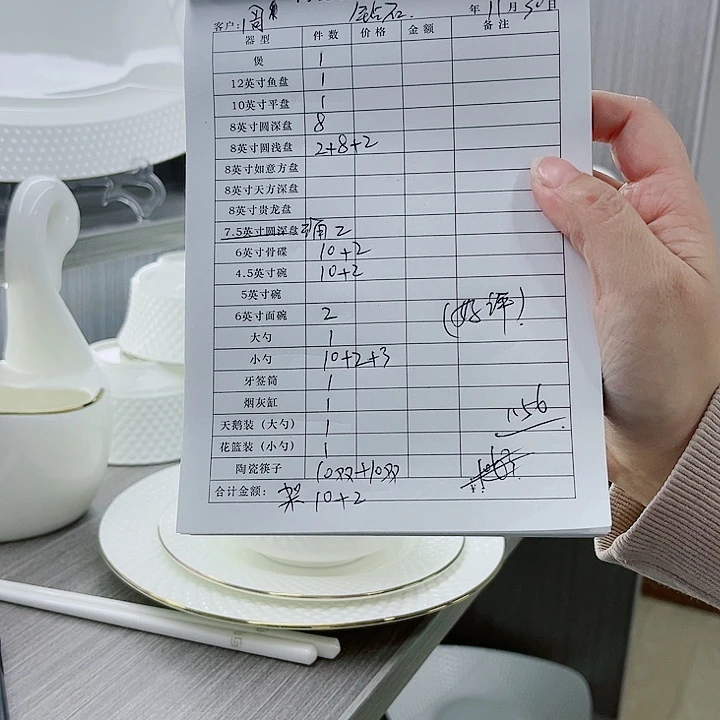 客户: 周 钻石 年 11 月 30 日
器型 件数 价格 金额 备注
煲 1
12英寸鱼盘 1
10英寸平盘 1
8英寸圆深盘 8
8英寸圆浅盘 2+8+2
8英寸如意方盘
8英寸天方深盘
8英寸贵龙盘
7.5英寸圆深盘 2
6英寸骨碟 10+2
4.5英寸碗 10+2
5英寸碗
6英寸面碗 2 (好评)
大勺 1
小勺 10+2+3
牙签筒 1
烟灰缸 1
天鹅装（大勺） 1 1156
花篮装（小勺） 1
陶瓷筷子 10双+10双
合计金额: 架 10+2